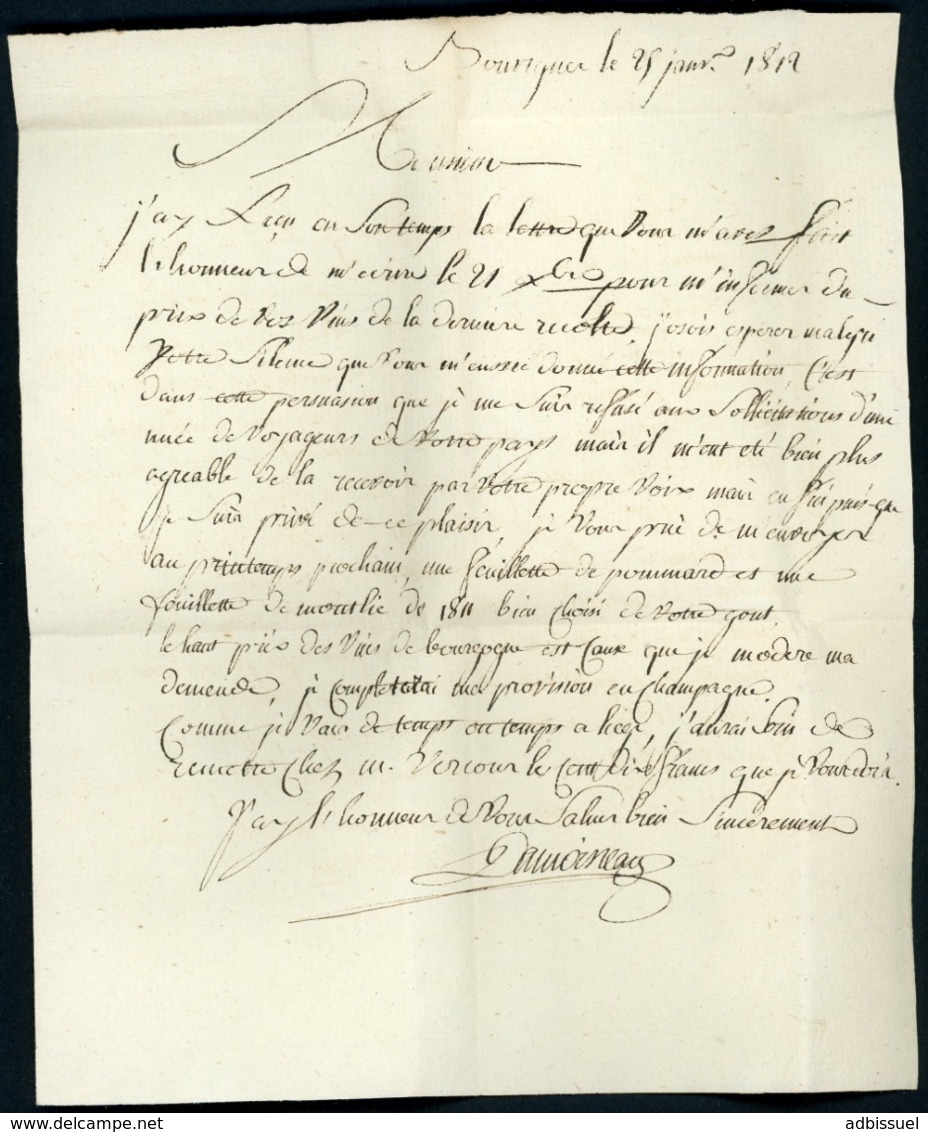 le 25 janv.r 1812
Monsieur
j'ay Reçu en Son temps la lettre que Vous m'avez fait
l'honneur de m'ecrire le 21 xbre pour m'informer du
prix de Vos Vins de la derniere recolte, j'osois esperer malgré
Votre Silence que Vous m'eussié donné cette information, C'est
dans cette persuasion que je me Suis refusé aux Sollicitations d'une
nuée de Voyageurs de Votre pays mais il m'eut eté bien plus
agreable de la recevoir par Votre propre Voix mais enfin puisque
je Suis privé de ce plaisir, je Vous prie de m'envoyer
au printemps prochain, une feuillette de pommard et une
feuillette de de 1811 bien choisi de Votre gout,
le haut prix des Vins de bourgogne est Cause que je modere ma
demende, je Completerai ma provision en Champagne.
Comme je Vais de temps en temps a liege, j'aurai Soin de
remettre Chez m. Vercour le Cent francs que je Vous dois.
J'ay l'honneur de Vous Saluer bien Sincerement
Damoiseau
© delcampe.net
adbissuel